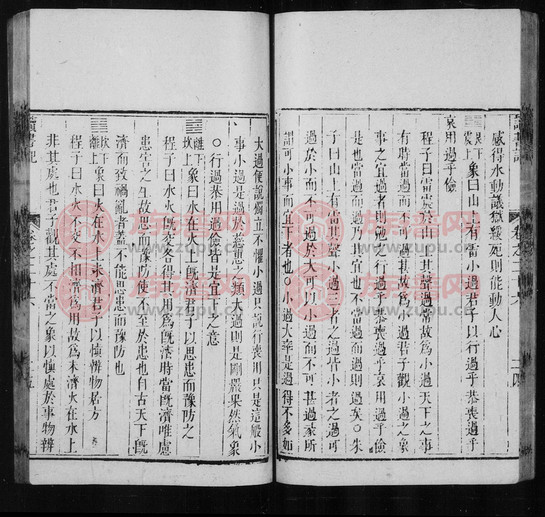 感得水動議獄緩死則能動人心
艮下震上象曰山上有雷小過君子以行過乎恭喪過乎
哀用過乎儉
程子曰雷震於山上其聲過常故為小過天下之事
有時當過而不可過甚故為小過君子觀小過之象
事之宜過者則勉之行過乎恭喪過乎哀用過乎儉
是也當過而過乃其宜也不當過而過則過矣○朱
子曰山上有雷其聲小過三者之過皆小者之過可
過於小而不可過於大可以小過而不可甚過彖所
謂可小事而宜下者也○小過大率是過得不多如
大過便說獨立不懼小過只說行喪用只是這般小
事小過是過於慈惠之類大過則是剛嚴果然氣象
○行過恭用過儉皆是宜下之意
離下坎上象曰水在火上既濟君子以思患而豫防之
程子曰水火既交各得其用為既濟時當既濟唯慮
患害之生故思而豫防使不至於患也自古天下既
濟而致禍亂者蓋不能思患而豫防也
坎下離上象曰火在水上未濟君子以慎辨物居方
程子曰水火不交不相濟為用故為未濟火在水上
非其處也君子觀其處不當之象以慎處於事物辨
讀書記
族譜网
www.zupu.cn